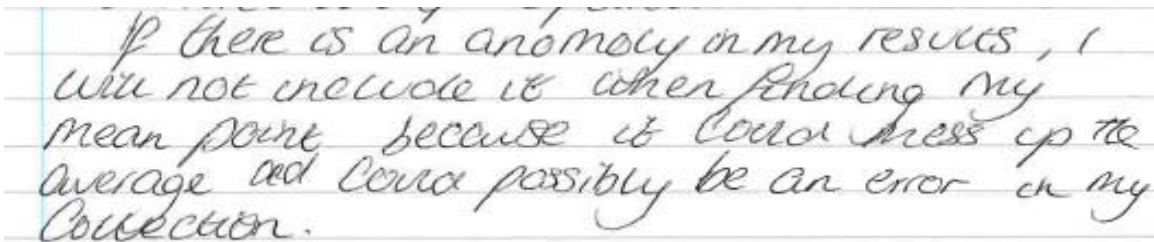 If there is an anomoly in my results, I
will not include it when finding my
mean point because it could mess up the
average and could possibly be an error in my
Collection.